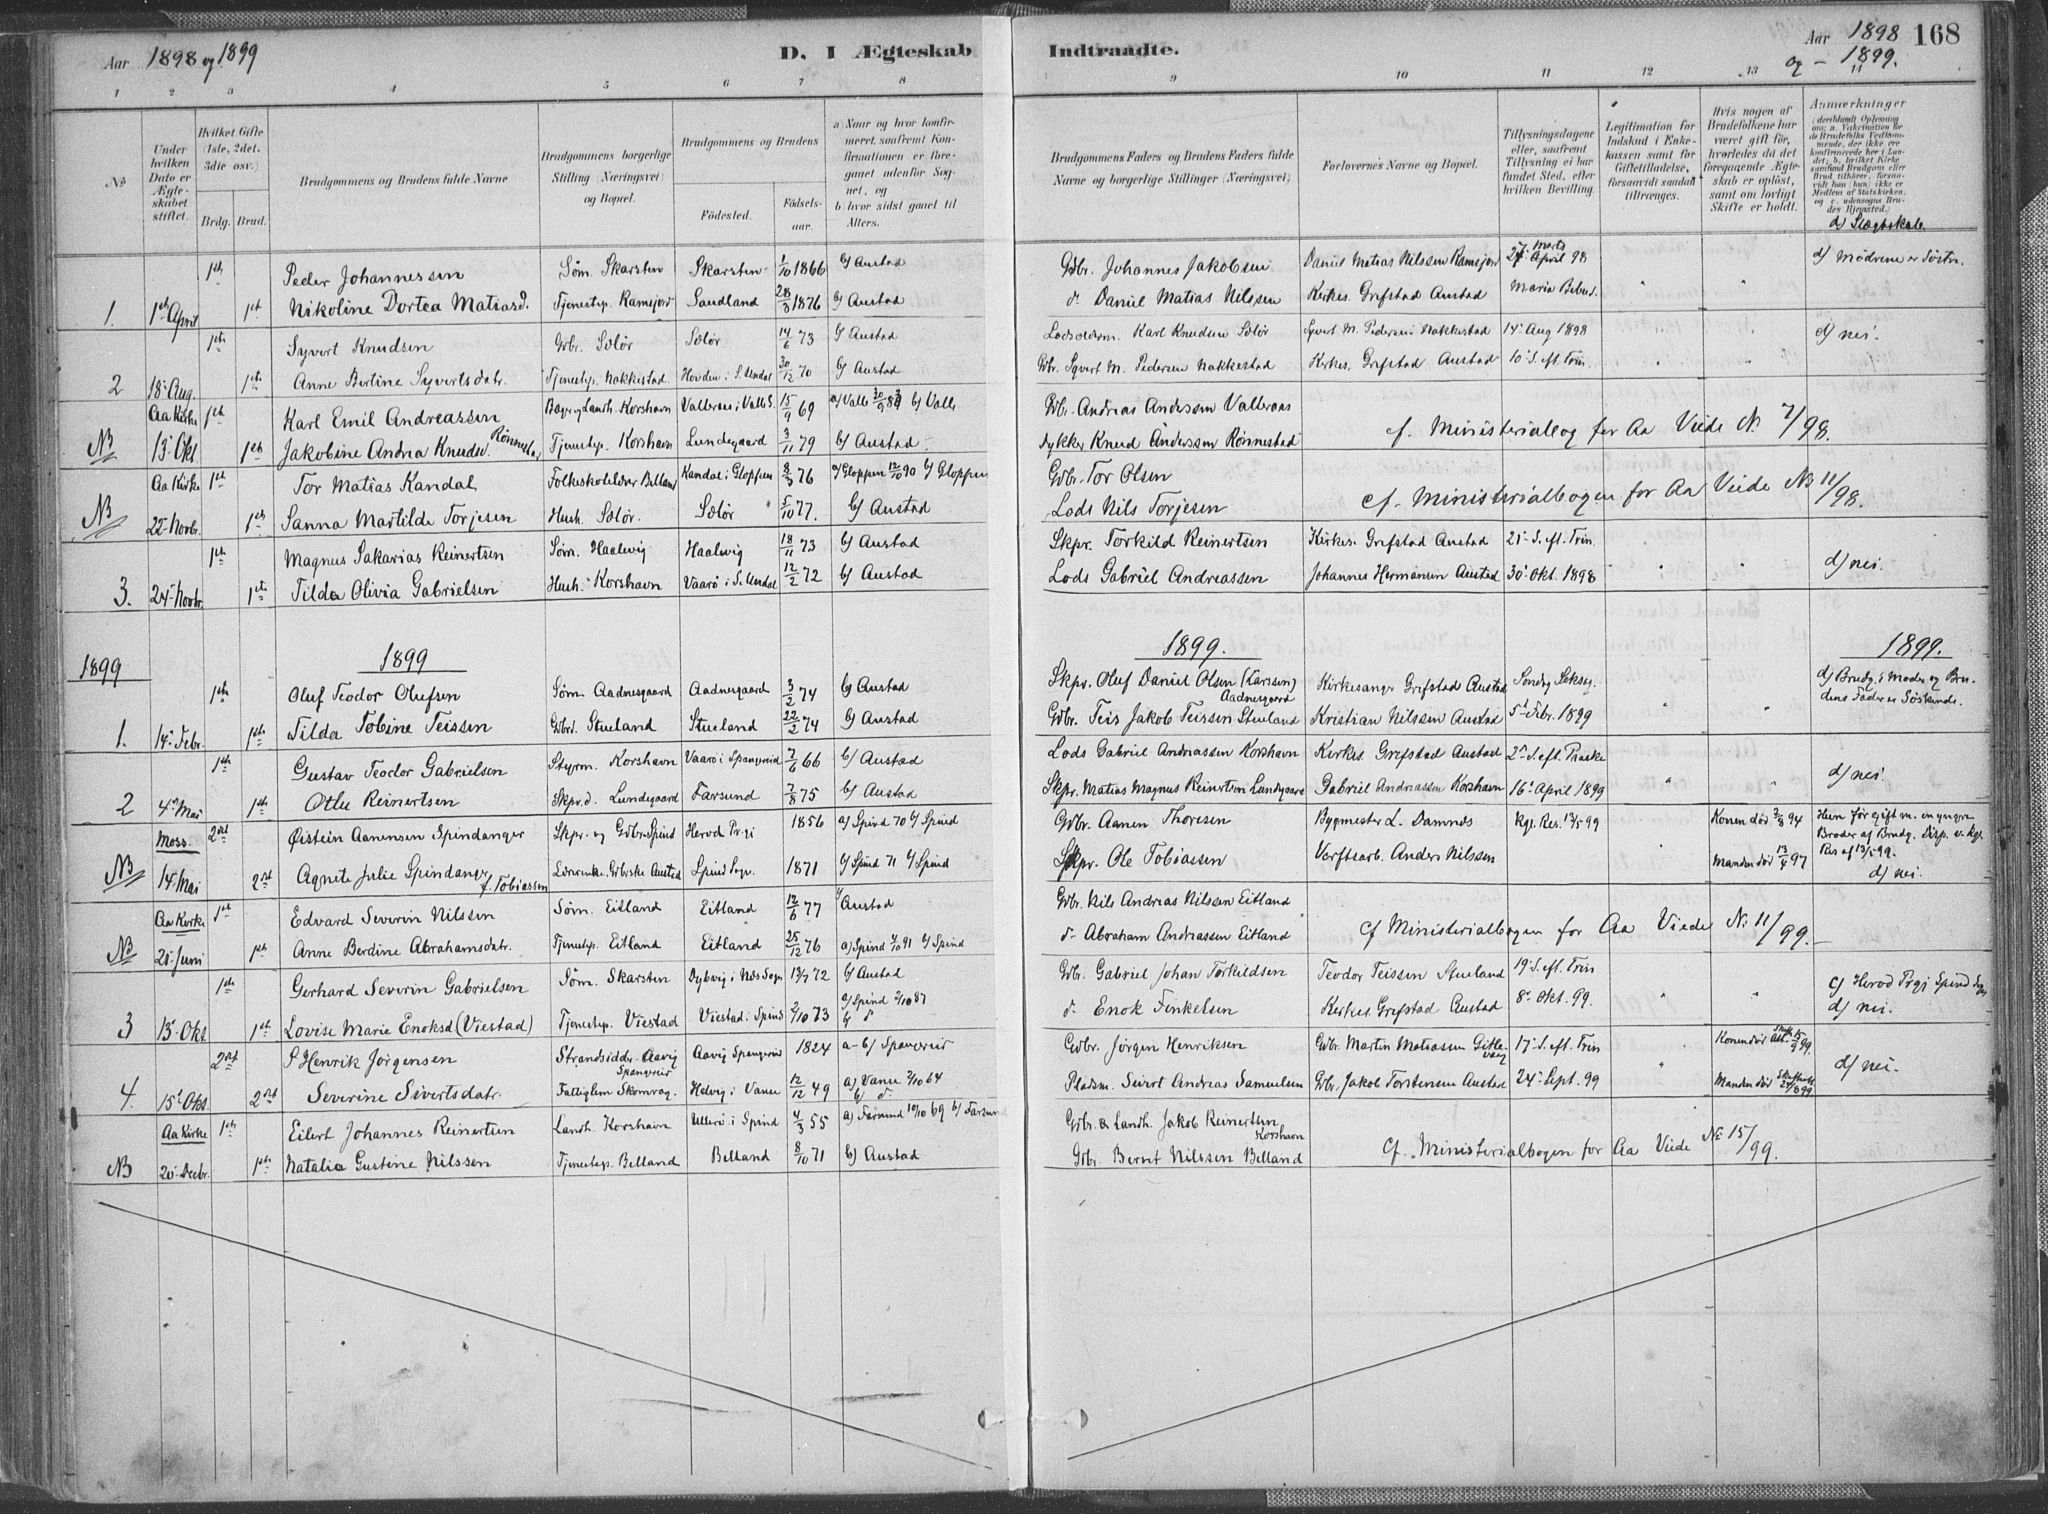 Aar 1898 og 1899
D. I Ægteskab
Indtraadte.
Aar 1898 168
og - 1899.
1 2 3 4 5 6 7 8 9 10 11 12 13 14
No
Under hvilken Dato er Ægteskabet stiftet.
Hvilket Gifte (1ste, 2det, 3die osv.)
Brdg. Brud.
Brudgommens og Brudens fulde Navne
Brudgommens borgerlige Stilling (Næringsvei) og Bopæl.
Brudgommens og Brudens
Födested. Födselsaar.
a) Naar og hvor konfirmeret, saafremt Konfirmationen er foregaaet udenför Sognet, og
b) hvor sidst gaaet til Alters.
Brudgommens Faders og Brudens Faders fulde Navne og borgerlige Stillinger (Næringsvei)
Forlovernes Navne og Bopæl.
Tillysningsdagene eller, saafremt Tillysning ei har fundet Sted, efter hvilken Bevilling.
Legitimation for Indskud i Enkekassen samt for Giftetilladelse, forsaavidt saadan tiltrænges.
Hvis nogen af Brudefolkene har været gift för, hvorledes da det foregaaende Ægteskab er oplöst, samt om lovligt Skifte er holdt.
Anmærkninger
d) Slægtskab.
1ste Peder Johannessen Söm. Skarsten Skarsten 1/10 1866 b/ Austad Gbr. Johannes Jakobsen Daniel Matias Nilssen Ramsjord 27 Marts April 98 d) Mödrene er Söstre.
1. 1ste April 1ste Nikoline Dortea Matiasd. Tjenestep. Ramsjord Sandland 28/3 1876 b/ Austad do Daniel Matias Nilssen Kirkes. Grefstad Austad Maria Bebud. "
1ste Syvert Knudsen Gbr. Sælör Sælör 14/6 73 b/ Austad Lodsoldm. Karl Knudsen Sælör Syvert M. Pedersen Nakkestad 14de Aug 1898 d) nei.
2 18de Aug. 1ste Anne Bertine Syvertsdatr. Tjenestep. Nakkestad Hovden i S. Undal 30/12 70 b/ Austad Gbr. Syvert M. Pedersen Nakkestad Kirkes. Grefstad Austad 10de S. eft. Trin.
Aa Kirke 1ste Karl Emil Andreassen Bager og Landh. Korshavn Valleraas i Valle S. 15/9 69 a) Valle 30/9 83 b/ Valle Gbr. Andreas Anderssen Valleraas
NB 13de Okt. 1ste Jakobine Andrea Knudsd. Rönnestad Tjenestep. Korshavn Lundegaard 3/11 79 b/ Austad Dykker Knud Anderssen Rönnestad cf. Ministerialbog for Aa Viede No 7/98.
Aa Kirke 1ste Tor Matias Kandal Folkeskolelærer Belland Kandal i Gloppen 8/3 76 a) Gloppen 12/10 90 b/ Gloppen Gbr. Tor Olsen
NB 22de Novbr. 1ste Sanna Martilde Torjesen Hush. Sælör. Sælör 5/10 77. b/ Austad Lods Nils Torjesen cf. Ministerialbogen for Aa Viede No 11/98.
1ste Magnus Sakarias Reinertsen Söm. Haalvig Haalvig 18/11 73 b/ Austad Skpr. Torkild Reinertsen Kirkes. Grefstad Austad 21de S. eft. Trin.
3. 24de Novbr. 1ste Tilda Olivia Gabrielsen Hush. Korshavn Vaarö i S. Undal 12/2 72 b/ Austad Lods Gabriel Andreassen Johannes Hermansen Austad 30te Okt. 1898 " d) nei.
1899 1899 1899. 1899.
1ste Oluf Teodor Olufsen Söm. Aadnesgaard Aadnesgaard 3/2 74 b/ Austad Skpr. Oluf Daniel Olsen (Larssen) Aadnesgaard Kirkesanger Grefstad Austad Söndag Seksag. d) Brudg.s Moder og Brudens Fader er Söskende.
1. 14de Febr. 1ste Tilda Tobine Teissen Gbrd. Stueland Stueland 22/2 74 b/ Austad Gbr. Teis Jakob Teissen Stueland Kristian Nilssen Austad 5te Febr. 1899 " "
1ste Gustav Teodor Gabrielsen Styrm. Korshavn Vaarö i Spangereid 7/6 66 b/ Austad Lods Gabriel Andreassen Korshavn Kirkes. Grefstad Austad 2den S. eft. Paaske
2 4de Mai 1ste Othe Reinertsen Skpr.d. Lundegaard Farsund 7/8 75 b/ Austad Skpr. Matias Magnus Reinertsen Lundegaard Gabriel Andreassen Korshavn 16de April 1899 " " d) nei.
Moss. 2det Øistein Aanensen Spindanger Skpr. og Gbr. Spind Herod Prgj 1856 a) Spind 70 b/ Spind Gbr. Aanen Thoresen Bygmester L. Damnæs Kgl. Res. 13/5 99 Konen död 2/3 94 Hun för gift m. en yngre Broder af Brudg. Disp. v. kgl. Res af 13/5 99.
NB 14. Mai 2det Agnete Julie Spindanger f. Tobiassen Gbrske Austad Spind Sogn. 1871 a) Spind 71 b/ Spind Skpr. Ole Tobiassen Værftsarb. Anders Nilssen Manden död 13/5 97 d) nei.
Aa Kirke 1ste Edvard Severin Nilssen Söm. Eitland Eitland 12/6 77 b/ Austad Gbr. Nils Andreas Nilssen Eitland
NB 21de Juni 1ste Anne Berdine Abrahamsdatr. Tjenestep. Eitland Eitland 25/12 76 a) Spind 4/10 91 b/ Spind do Abraham Andreassen Eitland cf Ministerialbogen for Aa Viede No 11/99.
1ste Gerhard Severin Gabrielsen Söm. Skarsten Dybvig i Næs Sogn 13/7 72 b/ Austad Gbr. Gabriel Johan Torkildsen Teodor Teissen Stueland 19de S. eft. Trin c) Herod Prgj Spind Sogn
3 13de Okt. 1ste Lovise Marie Enoksd (Viestad) Tjenestep. Viestad Viestad i Spind 2/10 73 a) Spind 2/10 87 b/ do do Enok Finkelsen Kirkes Grefstad Austad 8de Okt. 99. " " d) nei.
2det S Henrik Jörgensen Strandsidder Aavig Spangereid Aavig Spangereid 1824 a- b) Spangereid Gbr. Jörgen Henriksen Gbr. Martin Matiassen Gitlevaag 17de S. eft. Trin Konen död 15/9 99.
4. 15de Okt. 2det Severine Sivertsdatr. Fattiglem Skomrag. Helvig i Vanse 12/12 49 a) Vanse 2/10 64 b/ do Pladsm. Sivert Andreas Samuelsen Gbr. Jakob Torstensen Austad 24de Sept. 99 " Manden död 99 d) nei.
Aa Kirke 1ste Eilert Johannes Reinertsen Landh. Korshavn Ullerö i Spind 4/3 55 a) Farsund 10/10 69 b/ Farsund Gbr. & Landh. Jakob Reinertsen Korshavn
NB 20de Decbr. 1ste Natalia Gustine Nilssen Tjenestep. Belland Belland 8/10 71 b) Austad Gbr. Bernt Nilssen Belland cf. Ministerialbogen for Aa Viede No 15/99.